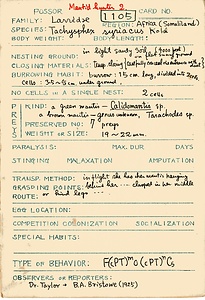 Mantid hunter 2
FOSSOR CARD NO.
1105
FAMILY: Larridae REGION: Africa (Somaliland)
SPECIES: Tachysphex syriacus Kohl
BODY WEIGHT: BODY LENGTH:
in light sandy soil
NESTING GROUND:
CLOSING MATERIALS:
BURROWING HABIT: burrow: 15 cm. long, divided into 2
cells. 3.5 - 8 cm under ground
NO. CELLS IN A SINGLE NEST: 2 cells
KIND: a green mantis - Calidomantis sp.
a brown mantis - genus unknown, Tarachodes sp.
PRESERVED NO.: 7 preys
WEIGHT OR SIZE: 19 ~ 22 mm.
PARALYSIS: MAX. DAYS
STINGING MALAXATION AMPUTATION
TRANSP. METHOD: in flight she has her mantis hanging
GRASPING POINTS: behind her ... clasped in her middle
ROUTE: or hind legs ...
EGG LOCATION:
COMPETITION COLONIZATION SOCIALIZATION
SPECIAL HABITS:
TYPE OF BEHAVIOR:
OBSERVERS OR REPORTERS:
Dr. Taylor & B.A. Bristowe (1925)